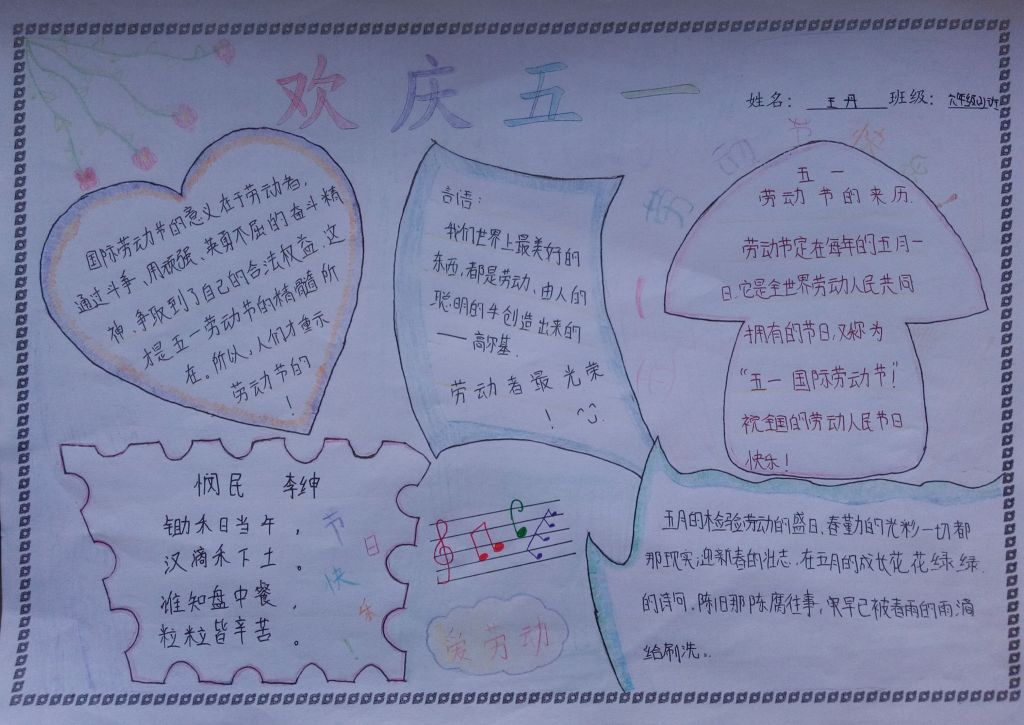 欢庆五一
姓名：王丹 班级：六年级(1)班
国际劳动节的意义在于劳动者，
通过斗争、用顽强、英勇不屈的奋斗精
神、争取到了自己的合法权益.这
才是五一劳动节的精髓所
在。所以，人们才重示
劳动节的
！
言语：
我们世界上最美好的
东西，都是劳动、由人的
聪明的手创造出来的
——高尔基.
劳动者最光荣
！
劳动节快乐！
五一
劳动节的来历.
劳动节定在每年的五月一
日.它是全世界劳动人民共同
拥有的节日，又称为
“五一国际劳动节！”
祝全国的劳动人民节日
快乐！
悯民 李绅
锄禾日当午，
汉滴禾下土。
谁知盘中餐，
粒粒皆辛苦。
节日快乐！
爱劳动
五月的检验劳动的盛日、春勤的光彩一切都
那现实；迎新春的壮志.在五月的成长花花绿绿.
的诗问.陈旧那陈腐往事，早已被春雨的雨滴
给刷洗..